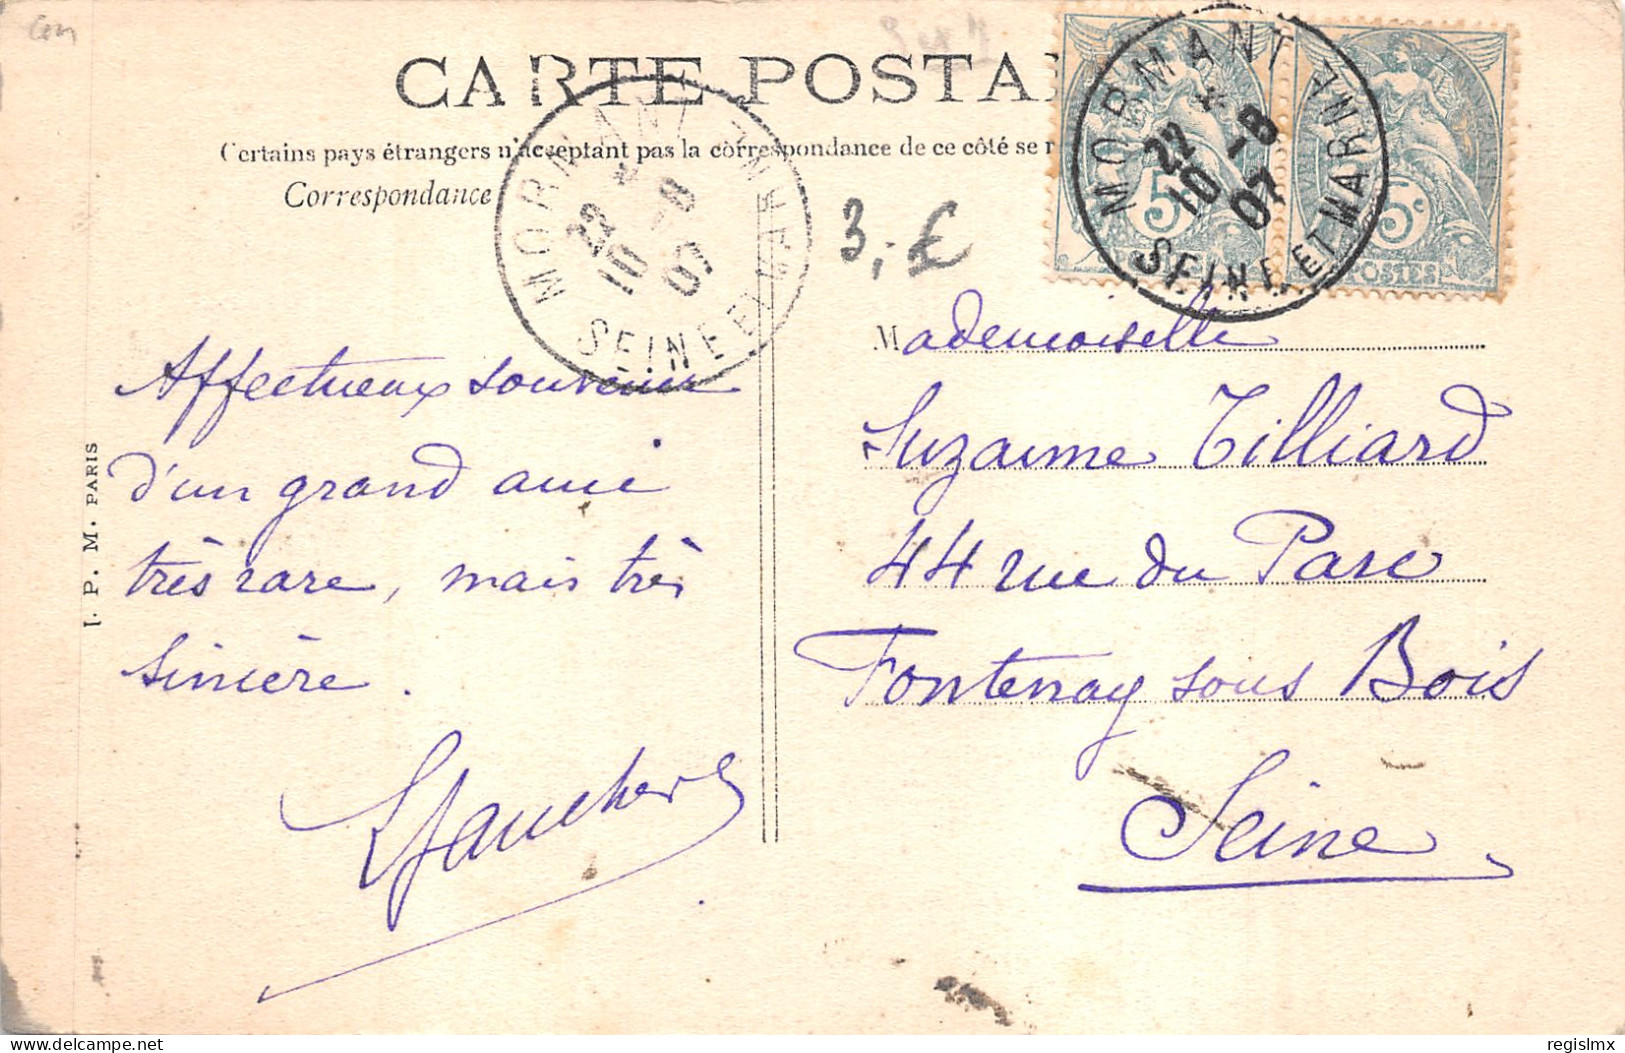 CARTE POSTA
Certains pays étrangers n'acceptant pas la correspondance de ce côté se r
Correspondance
MORMANT
SEINE ET MARNE
22
10 -8
07
MORMANT
SEINE ET MARNE
22
10 -8
07
5c
POSTES
3,-€
Affectueux souvenir
d'un grand ami
très rare, mais très
sincère.
Mademoiselle
Suzanne Tilliard
44 rue du Parc
Fontenay sous Bois
Seine
I. P. M. PARIS
delcampe.net
regislmx